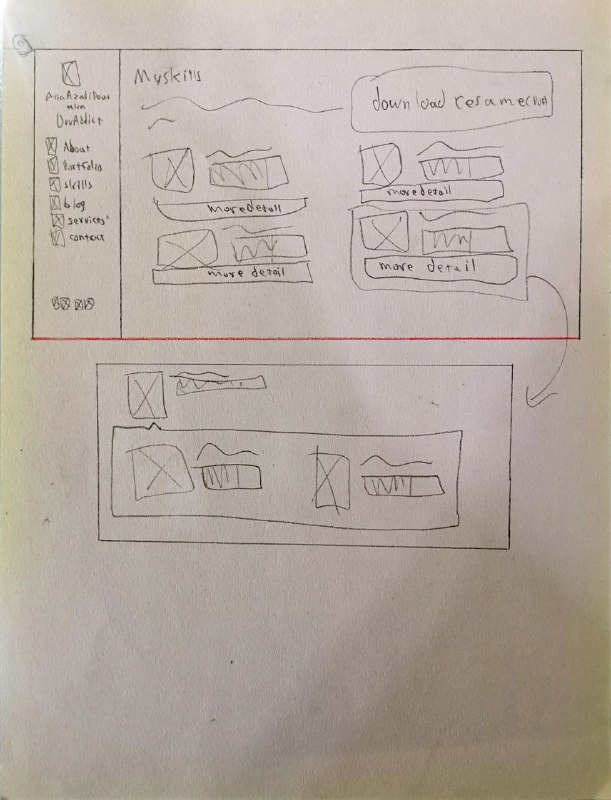 DevAddict
About
Portfolio
skills
blog
services
contact
My skills
download resume(PDF)
more detail
more detail
more detail
more detail